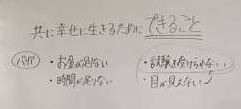 共に幸せに生きるためにできること
バリア
・お金が足りない
・時間が足りない
・試験を受けられない
・目が見えない